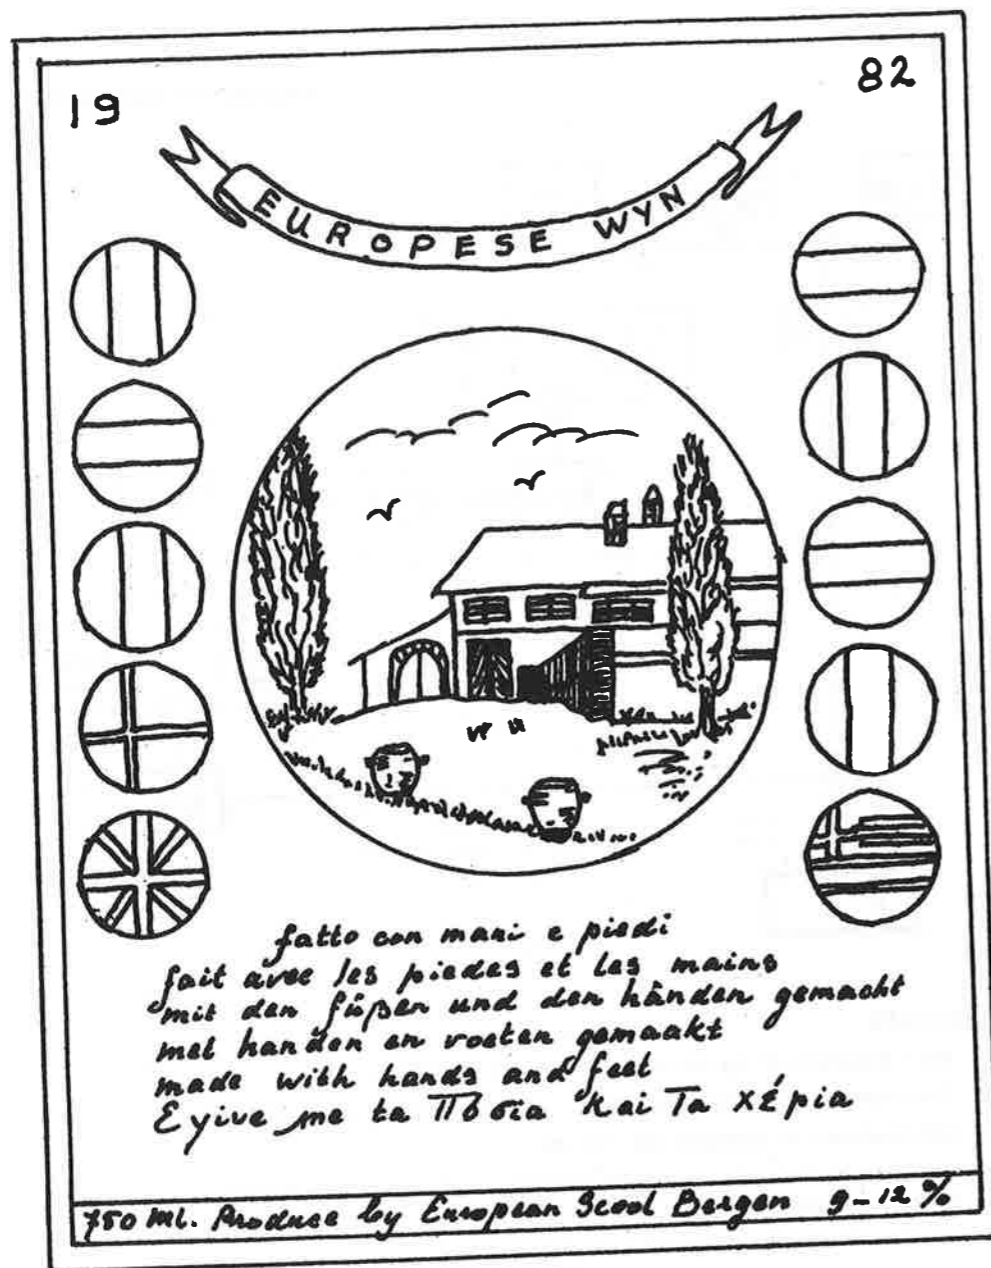 19 82
EUROPESE WYN
fatto con mani e piedi
fait avec les piedes et les mains
mit den füßen und den händen gemacht
met handen en voeten gemaakt
made with hands and feet
Eyive me ta Πόσια και Τα χέρια
750 ml. Produce by European Scool Bergen 9-12%